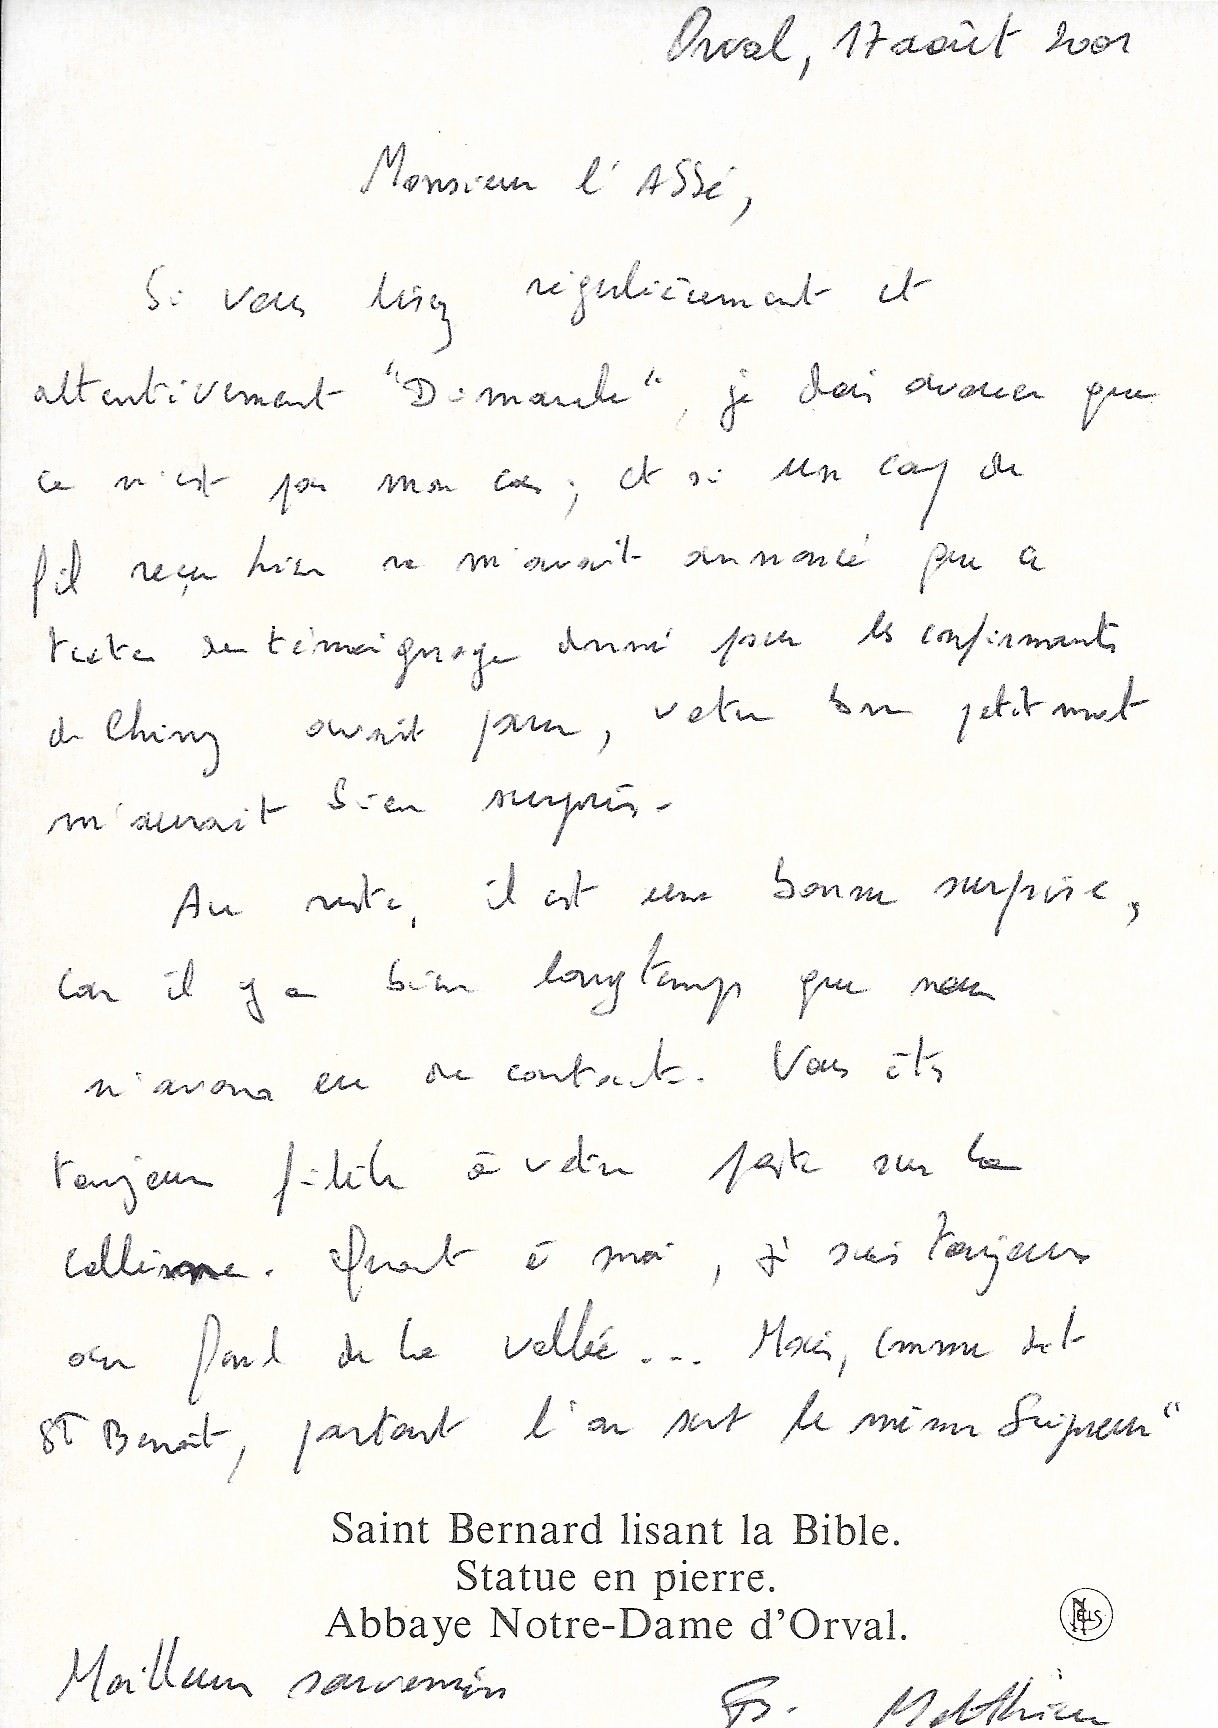 Orval, 17 août 2001
Monsieur l'Abbé,
Si vous lisez régulièrement et
attentivement "Dimanche", je dois avouer que
ce n'est pas mon cas ; et si un coup de
fil reçu hier ne m'avait annoncé que ce
texte de témoignage donné pour les confirmants
de Chiny avait paru, votre bon petit mot
m'aurait bien surpris.
Au reste, il est une bonne surprise,
car il y a bien longtemps que nous
n'avons eu de contact. Vous êtes
toujours fidèle à votre poste sur la
colline. Quant à moi, je suis toujours
au fond de la vallée... Mais, comme dit
St Benoît, partout l'on sert le même Seigneur"
Saint Bernard lisant la Bible.
Statue en pierre.
Abbaye Notre-Dame d'Orval.
NELS
Meilleurs souvenirs
Fr. Matthieu